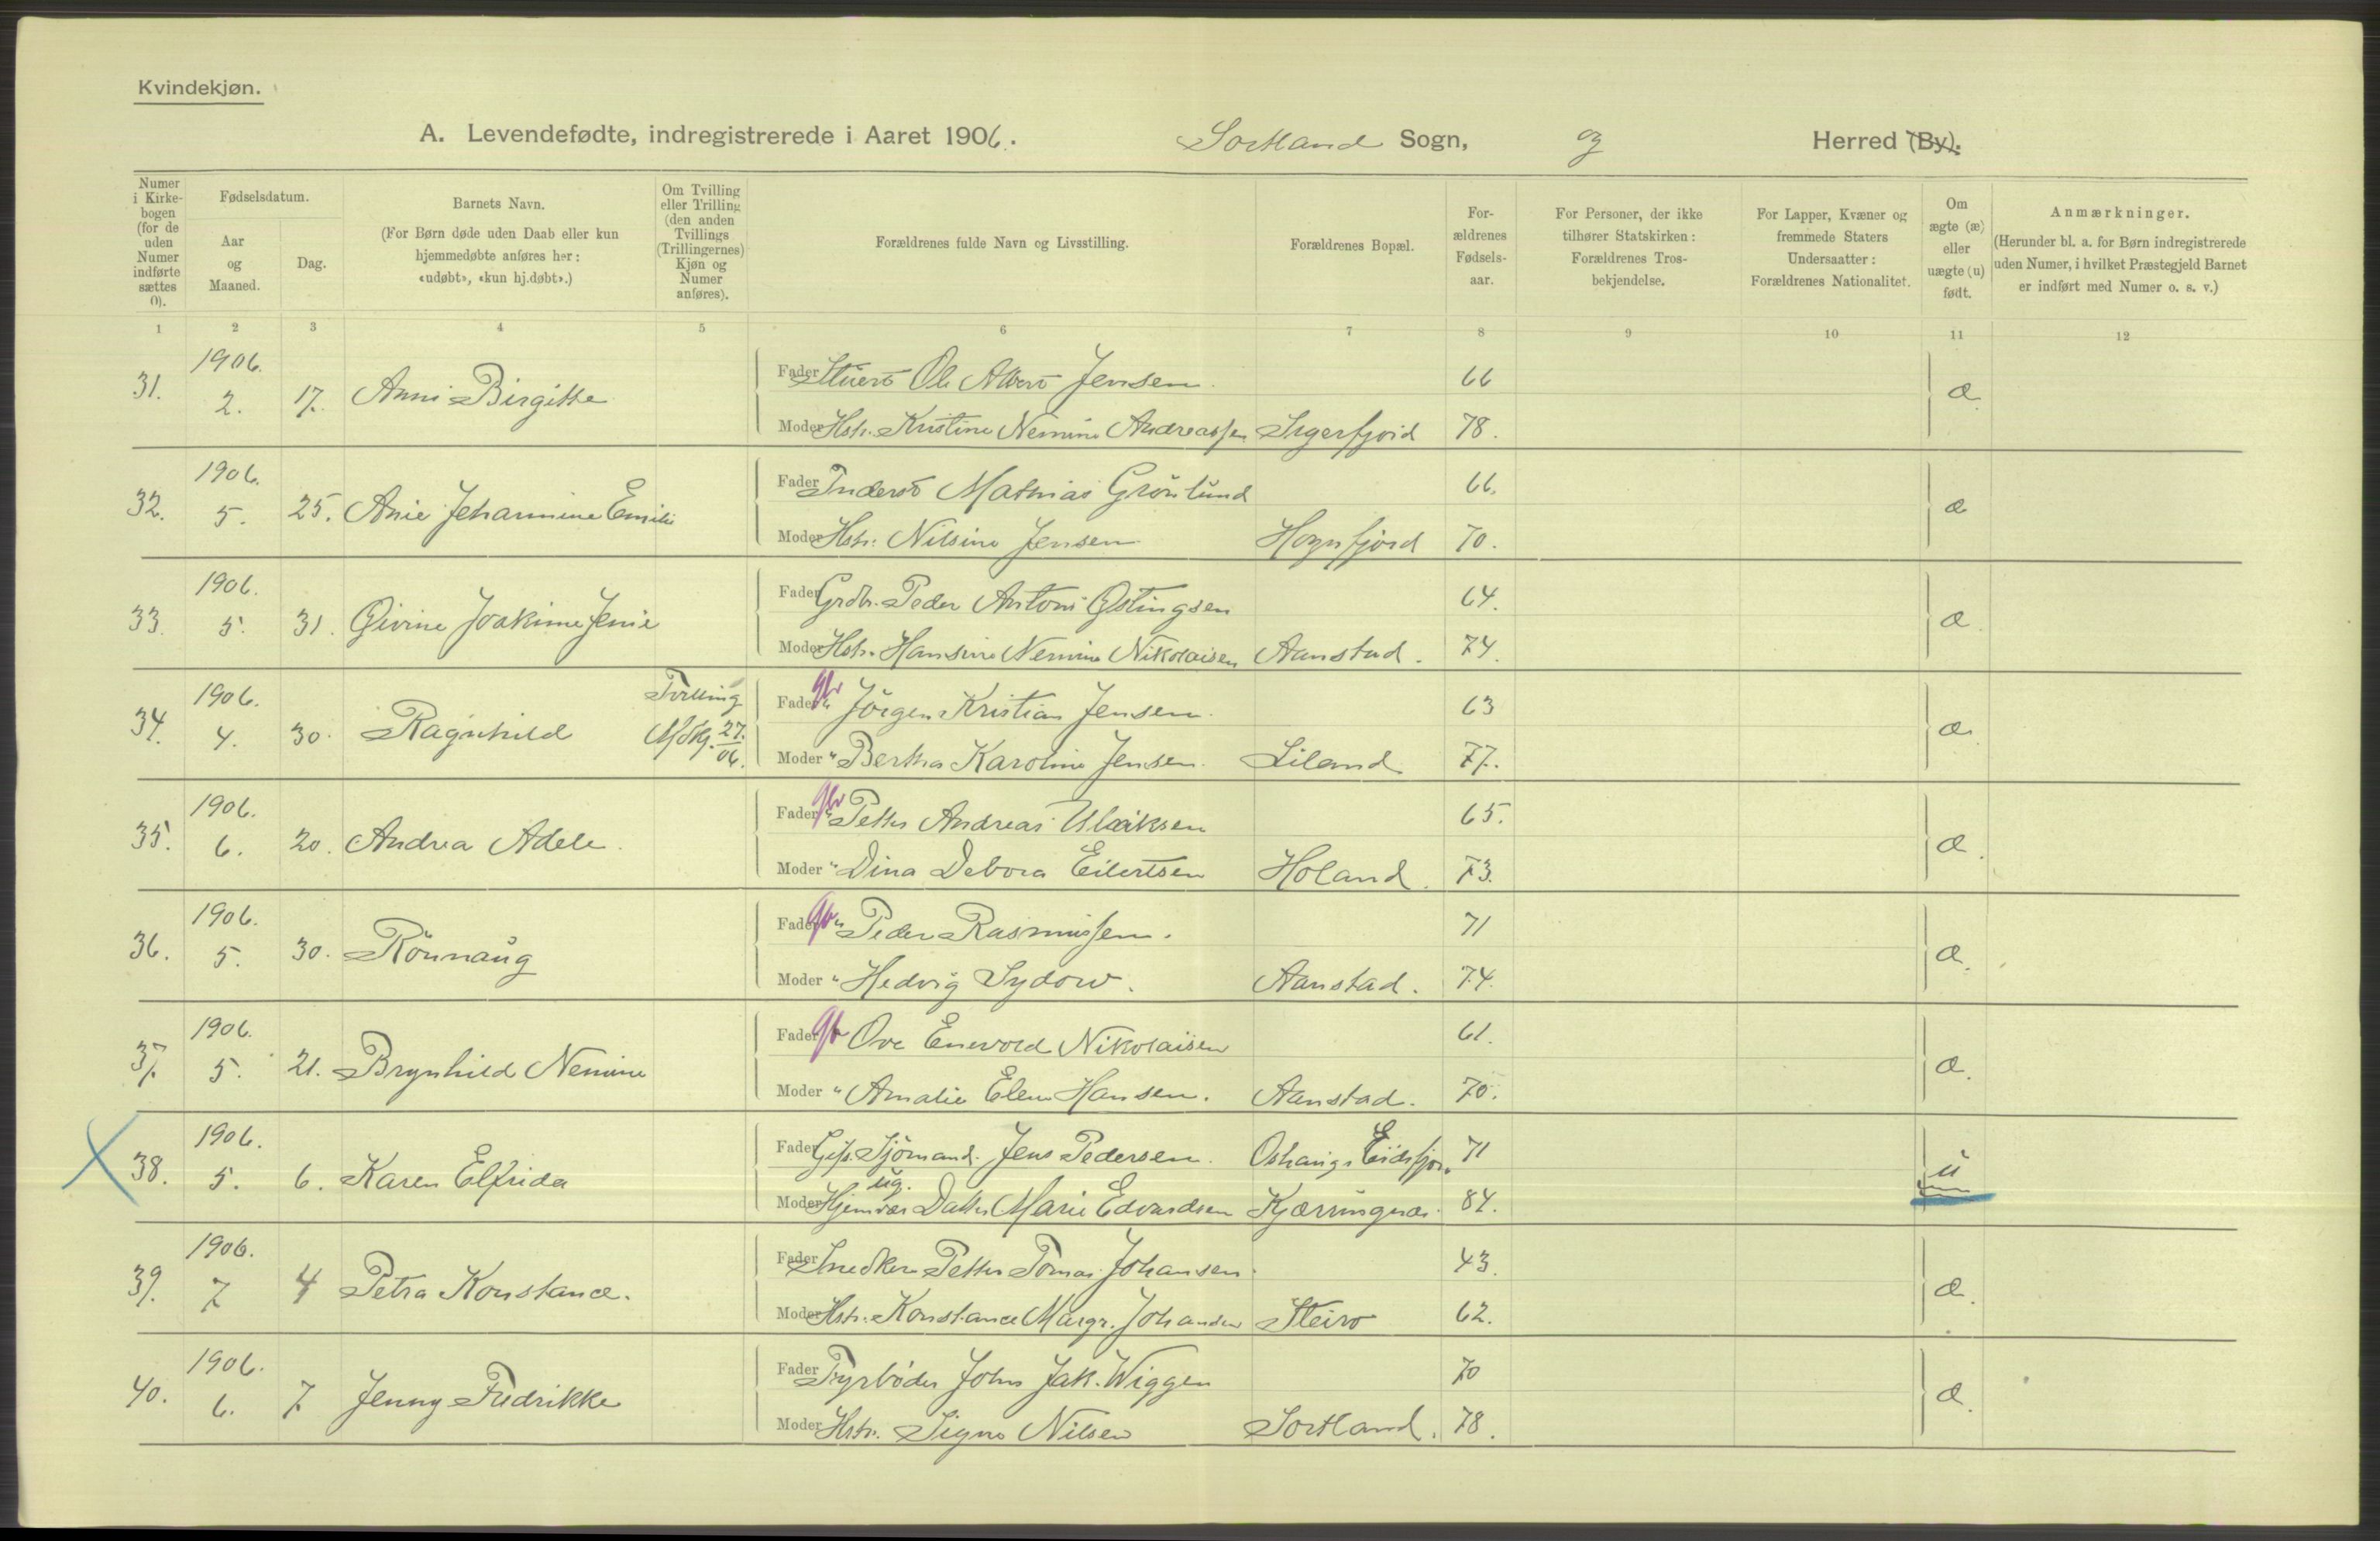 Kvindekjøn.
A. Levendefødte, indregistrerede i Aaret 1906. Sortland Sogn, og Herred (By).
Numer i Kirke-bogen (for de uden Numer indførte sættes 0).
Fødselsdatum.
Aar og Maaned.
Dag.
Barnets Navn.
(For Børn døde uden Daab eller kun hjemmedøbte anføres her: «udøbt», «kun hj.døbt».)
Om Tvilling eller Trilling (den anden Tvillings (Trillingernes) Kjøn og Numer anføres).
Forældrenes fulde Navn og Livsstilling.
Forældrenes Bopæl.
For-ældrenes Fødsels-aar.
For Personer, der ikke tilhører Statskirken: Forældrenes Tros-bekjendelse.
For Lapper, Kvæner og fremmede Staters Undersaatter: Forældrenes Nationalitet.
Om ægte (æ) eller uægte (u) født.
Anmærkninger.
(Herunder bl. a. for Børn indregistrerede uden Numer, i hvilket Præstegjeld Barnet er indført med Numer o. s. v.)
1 2 3 4 5 6 7 8 9 10 11 12
31. 1906. 2. 17. Anni Birgitte
Fader Stuert Ole Albert Jensen. 66 æ.
Moder Hstr. Kristine Nemine Andreassen Sigerfjord 78.
32. 1906. 5. 25. Anie Jeharmine Emilie
Fader Inderst Mathias Grönlund 66. æ
Moder Hstr. Nilsine Jensen Hognfjord 70.
33. 1906. 5. 31. Givine Joakime Jenie
Fader Grdbr. Peder Antoni Østingsen 64. æ.
Moder Hstr. Hansine Nemine Nikolaisen Aanstad. 74.
34. 1906. 4. 30. Ragnhild Tvilling M.kj. 27./06.
Fader gb " Jörgen Kristian Jensen. 63 æ.
Moder " Bertha Karoline Jensen. Liland 77.
35. 1906. 6. 20. Andrea Adele.
Fader gb " Petter Andreas Ulriksen 65. æ.
Moder " Dina Debora Eilertsen Holand. 73.
36. 1906. 5. 30. Rönnaug
Fader gb " Peder Rasmussen. 71 æ.
Moder " Hedvig Sydow. Aanstad. 74.
37. 1906. 5. 21. Brynhild Nemine
Fader gb Ove Enevold Nikolaisen 61. æ.
Moder " Amalie Elene Hansen. Aanstad. 70.
38. 1906. 5. 6. Karen Elfrida
Fader Gift. Sjömand. Jens Pedersen. Eidsfjor. 71 u
ug.
Moder Hjemvær Datter Marie Edvardsen Kjærringnæs. 84.
39. 1906. 7 4 Petra Konstance.
Fader Snedker Petter Tomas Johansen. 43. æ.
Moder Hstr. Konstance Margr. Johansen Steiro 62.
40. 1906. 6. 7. Jenny Fredrikke
Fader Fyrböder John Jak. Wiggen 70 æ.
Moder Hstr. Signe Nilsen Sortland. 78.